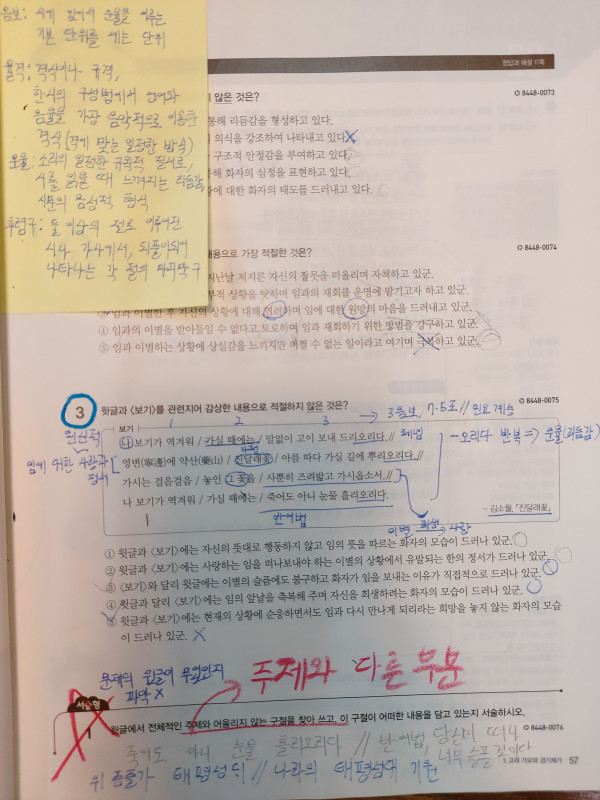 음보: 시에 있어서 운율을 이루는
기본 단위를 세는 단위
율격: 격식이나 규격,
한시의 구성법에서 언어와
음률을 가장 음악적으로 이용한
격식 (격에 맞는 일정한 방식)
운율: 소리의 일정한 규칙적 질서로,
시를 읽을 때 느껴지는 리듬감,
시문의 음성적 형식
후렴구: 둘 이상의 절로 이루어진
시나 가사에서, 되풀이되어
나타나는 각 절의 마지막 구
정답과 해설 17쪽
8448-0073
지 않은 것은?
통해 리듬감을 형성하고 있다.
의식을 강조하여 나타내고 있다.
구조적 안정감을 부여하고 있다.
해 화자의 심정을 표현하고 있다.
에 대한 화자의 태도를 드러내고 있다.
8448-0074
내용으로 가장 적절한 것은?
지난날 저지른 자신의 잘못을 떠올리며 자책하고 있군.
부적 상황을 탓하며 임과의 재회를 운명에 맡기고자 하고 있군.
③ 임과 이별한 후 자신의 상황에 대해 하며 임에 대한 원망의 마음을 드러내고 있군.
④ 임과의 이별을 받아들일 수 없다고 토로하며 임과 재회하기 위한 방법을 강구하고 있군.
⑤ 임과 이별하는 상황에 상실감을 느끼지만 어쩔 수 없는 일이라고 여기며 극복하고 있군.
3 윗글과 <보기>를 관련지어 감상한 내용으로 적절하지 않은 것은?
8448-0075
보기
1 2 3 → 3음보, 7·5조 // 민요 계승
나 보기가 역겨워 / 가실 때에는 / 말없이 고이 보내 드리오리다. //
체념
- 오리다 반복 => 운율(리듬감)
영변(寧邊)에 약산(藥山) / 진달래꽃 / 아름 따다 가실 길에 뿌리오리다. //
임에 대한 사랑과
정서
가시는 걸음걸음 / 놓인 그 꽃을 / 사뿐히 즈려밟고 가시옵소서. //
나 보기가 역겨워 / 가실 때에는 / 죽어도 아니 눈물 흘리오리다.
반어법
이별 희생 사랑
- 김소월, 「진달래꽃」
① 윗글과 <보기>에는 자신의 뜻대로 행동하지 않고 임의 뜻을 따르는 화자의 모습이 드러나 있군.
② 윗글과 <보기>에는 사랑하는 임을 떠나보내야 하는 이별의 상황에서 유발되는 한의 정서가 드러나 있군.
③ <보기>와 달리 윗글에는 이별의 슬픔에도 불구하고 화자가 임을 보내는 이유가 직접적으로 드러나 있군.
④ 윗글과 달리 <보기>에는 임의 앞날을 축복해 주며 자신을 희생하려는 화자의 모습이 드러나 있군.
⑤ 윗글과 <보기>에는 현재의 상황에 순응하면서도 임과 다시 만나게 되리라는 희망을 놓지 않는 화자의 모습
이 드러나 있군.
문제의 윗글이 무엇인지
파악 X
주제와 다른 부분
서술형
1 윗글에서 전체적인 주제와 어울리지 않는 구절을 찾아 쓰고, 이 구절이 어떠한 내용을 담고 있는지 서술하시오.
8448-0076
죽어도 아니 눈물 흘리오리다 // 반어법 당신이 떠나
너무 슬플 것이다
위 증즐가 태평성대 // 나라의 태평성대 기원
1. 고려 가요와 경기체가 57